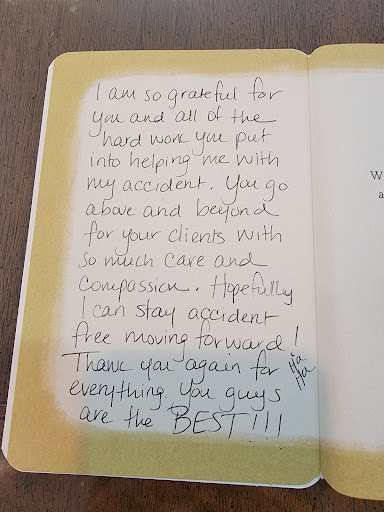 I am so grateful for
you and all of the
hard work you put
into helping me with
my accident. You go
above and beyond
for your clients with
so much care and
compassion. Hopefully
I can stay accident
free moving forward!
Ha
Ha
Thank you again for
everything. You guys
are the BEST!!!
W
a